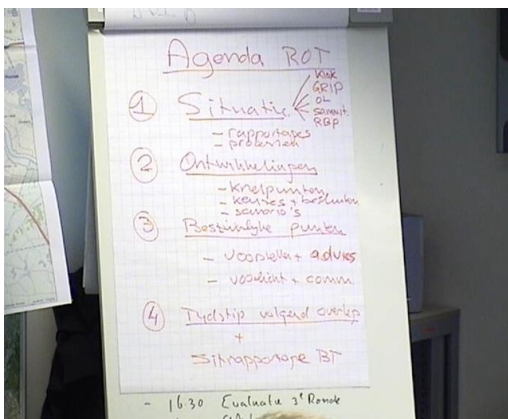 Agenda ROT
① Situatie
Klok
GRIP
OL
Samenst.
RBP
- rapportages
- processen
② Ontwikkelingen
- knelpunten
- keuzes + besluiten
- scenario's
③ Bestuurlijke punten
- voorstellen + advies
- voorlicht + comm.
④ Tijdstip volgend overleg
+
Sitrapportage BT
- 16.30 Evaluatie 3e Ronde